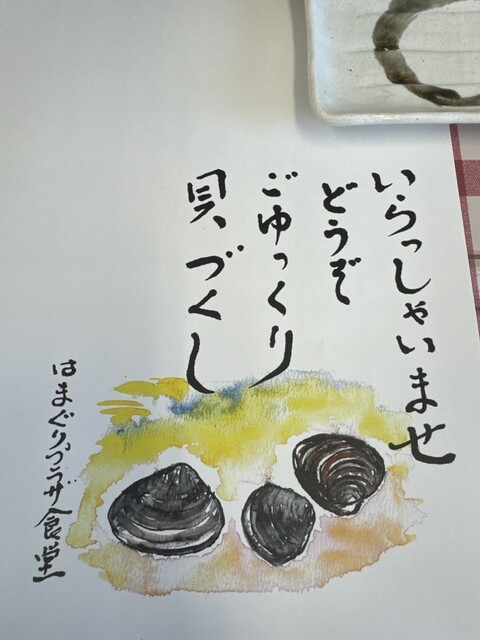 いらっしゃいませ
どうぞ
ごゆっくり
貝づくし
はまぐりプラザ食堂